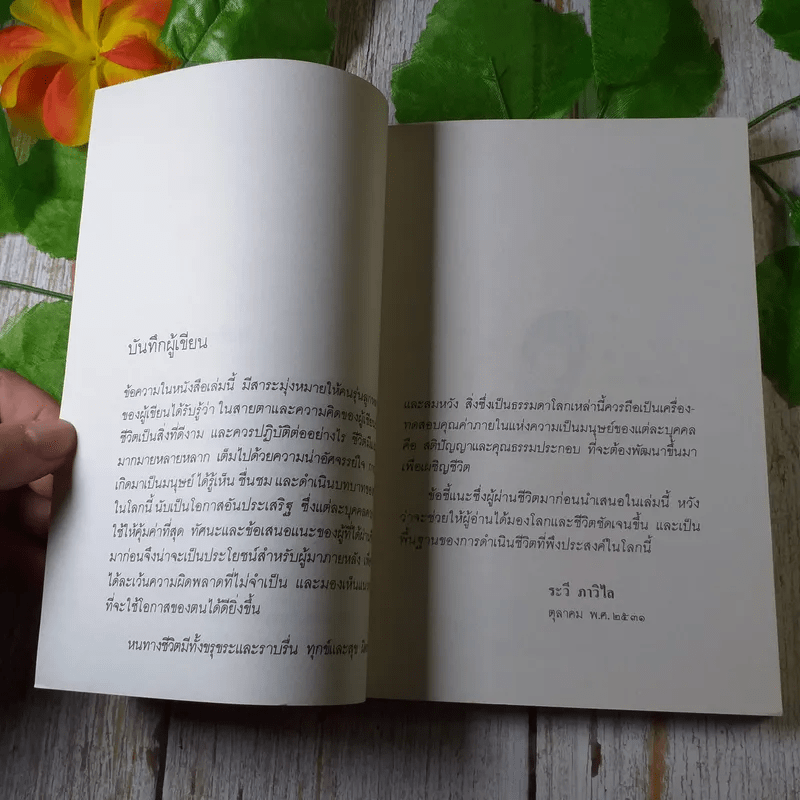 บันทึกผู้เขียน
ข้อความในหนังสือเล่มนี้ มีสาระมุ่งหมายให้คนรุ่น
ของผู้เขียนได้รับรู้ว่า ในสายตาและความคิดของผู้เขียน
ชีวิตเป็นสิ่งที่ดีงาม และควรปฏิบัติต่ออย่างไร ชีวิต
มากมายหลายหลาก เต็มไปด้วยความน่าอัศจรรย์ใจ
เกิดมาเป็นมนุษย์ ได้รู้เห็น ชื่นชม และดำเนินบทบาท
ในโลกนี้ นับเป็นโอกาสอันประเสริฐ ซึ่งแต่ละบุคคล
ใช้ให้คุ้มค่าที่สุด ทัศนะและข้อเสนอแนะของผู้ที่ได้ผ่าน
มาก่อนจึงน่าจะเป็นประโยชน์สำหรับผู้มาภายหลัง
ได้ละเว้นความผิดพลาดที่ไม่จำเป็น และมองเห็น
ที่จะใช้โอกาสของตนได้ดียิ่งขึ้น
หนทางชีวิตมีทั้งขรุขระและราบรื่น ทุกข์และสุข
และสมหวัง สิ่งซึ่งเป็นธรรมดาโลกเหล่านี้ควรถือเป็นเครื่อง-
ทดสอบคุณค่าภายในแห่งความเป็นมนุษย์ของแต่ละบุคคล
คือ สติปัญญาและคุณธรรมประกอบ ที่จะต้องพัฒนาขึ้นมา
เพื่อเผชิญชีวิต
ข้อชี้แนะซึ่งผู้ผ่านชีวิตมาก่อนนำเสนอในเล่มนี้ หวัง
ว่าจะช่วยให้ผู้อ่านได้มองโลกและชีวิตชัดเจนขึ้น และเป็น
พื้นฐานของการดำเนินชีวิตที่พึงประสงค์ในโลกนี้
ระวี ภาวิไล
ตุลาคม พ.ศ.๒๕๓๑